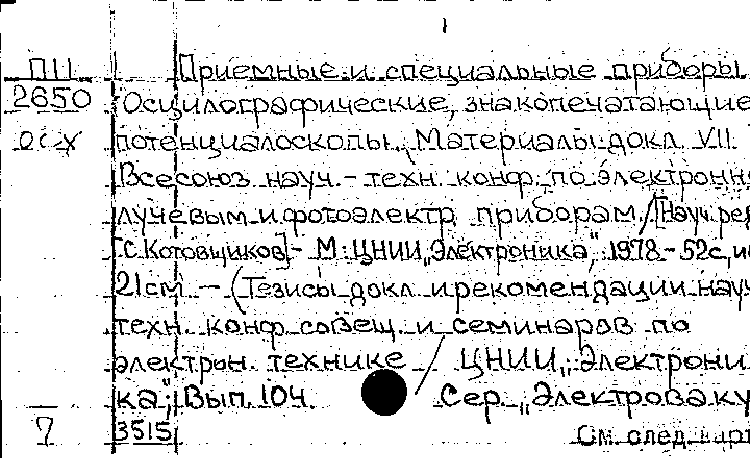 П11 Приемные и специальные приборы
2650 Осцилографические, знакопечатающие
потенциалоскопы. Материалы докл. VII
Всесоюз. науч.-техн. конф. по электронн
лучевым и фотоэлектр. приборам / [Науч. ред
Г.С. Котовщиков] - М.: ЦНИИ „Электроника“, 1978 - 52с, ил
21см. - (Тезисы докл. и рекомендации науч
техн. конф. совещ. и семинаров по
электрон. технике / ЦНИИ „Электрони
ка“; Вып. 104. Сер. „Электроваку
7 3515 См. след. карт